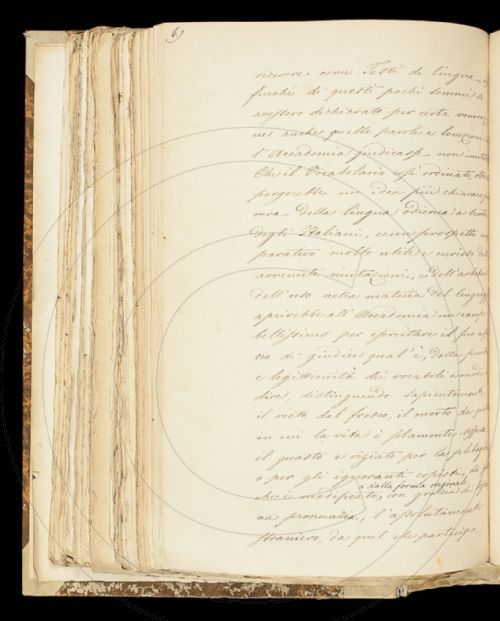 6.
ricevere come Testi di lingua,
finchè di questi pochi sommi
avessero dichiarato per certa
ne anche quelle parole e locuzioni
l'Accademia giudicasse non
Che il Vocabolario così ordinato,
porgerebbe un idea più chiara
vera della lingua odierna a
degli Italiani, e un prospetto
parativo molto utile e curioso
avvenute mutazioni, e dell'
dell'uso nella materia del
aprirebbe all'Accademia un campo
bellissimo per esercitare il suo
cio di giudice qual'è, della
e legittimità dei vocaboli e
dire, distinguendo sapientemente
il vieto dal fresco, il morto da
in cui la vita è solamente
il guasto e viziato per la
o per gli ignoranti copisti, da
che è modificato, dalla forma originale con grazia di
na pronunzia, l'assolutamente
straniero, da quel che partecipa